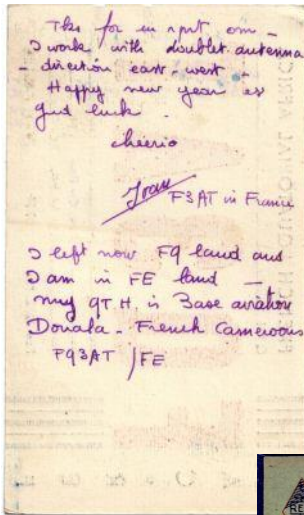 Tks for
I work with doublet antenna
- direction east-west -
Happy new year es
gud luck.
cheerio
F3AT in France
I left now F9 land and
I am in FE land -
my QT.H. is Base aviation
Douala - French Cameroons
F93AT/FE